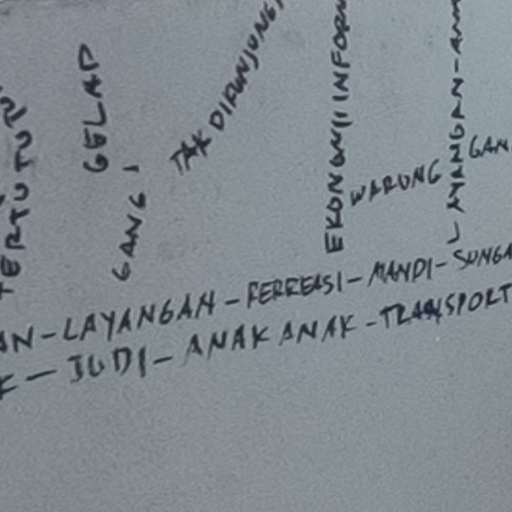 TERTUTUP
GELAP
GANG
TAK DIKUNJUNGI
EKONOMI INFOR
WARUNG
LAYANGAN-AN
GAN
AN-LAYANGAN-REKREASI-MANDI-SUNGA
K-JUDI-ANAK ANAK-TRANSPORT